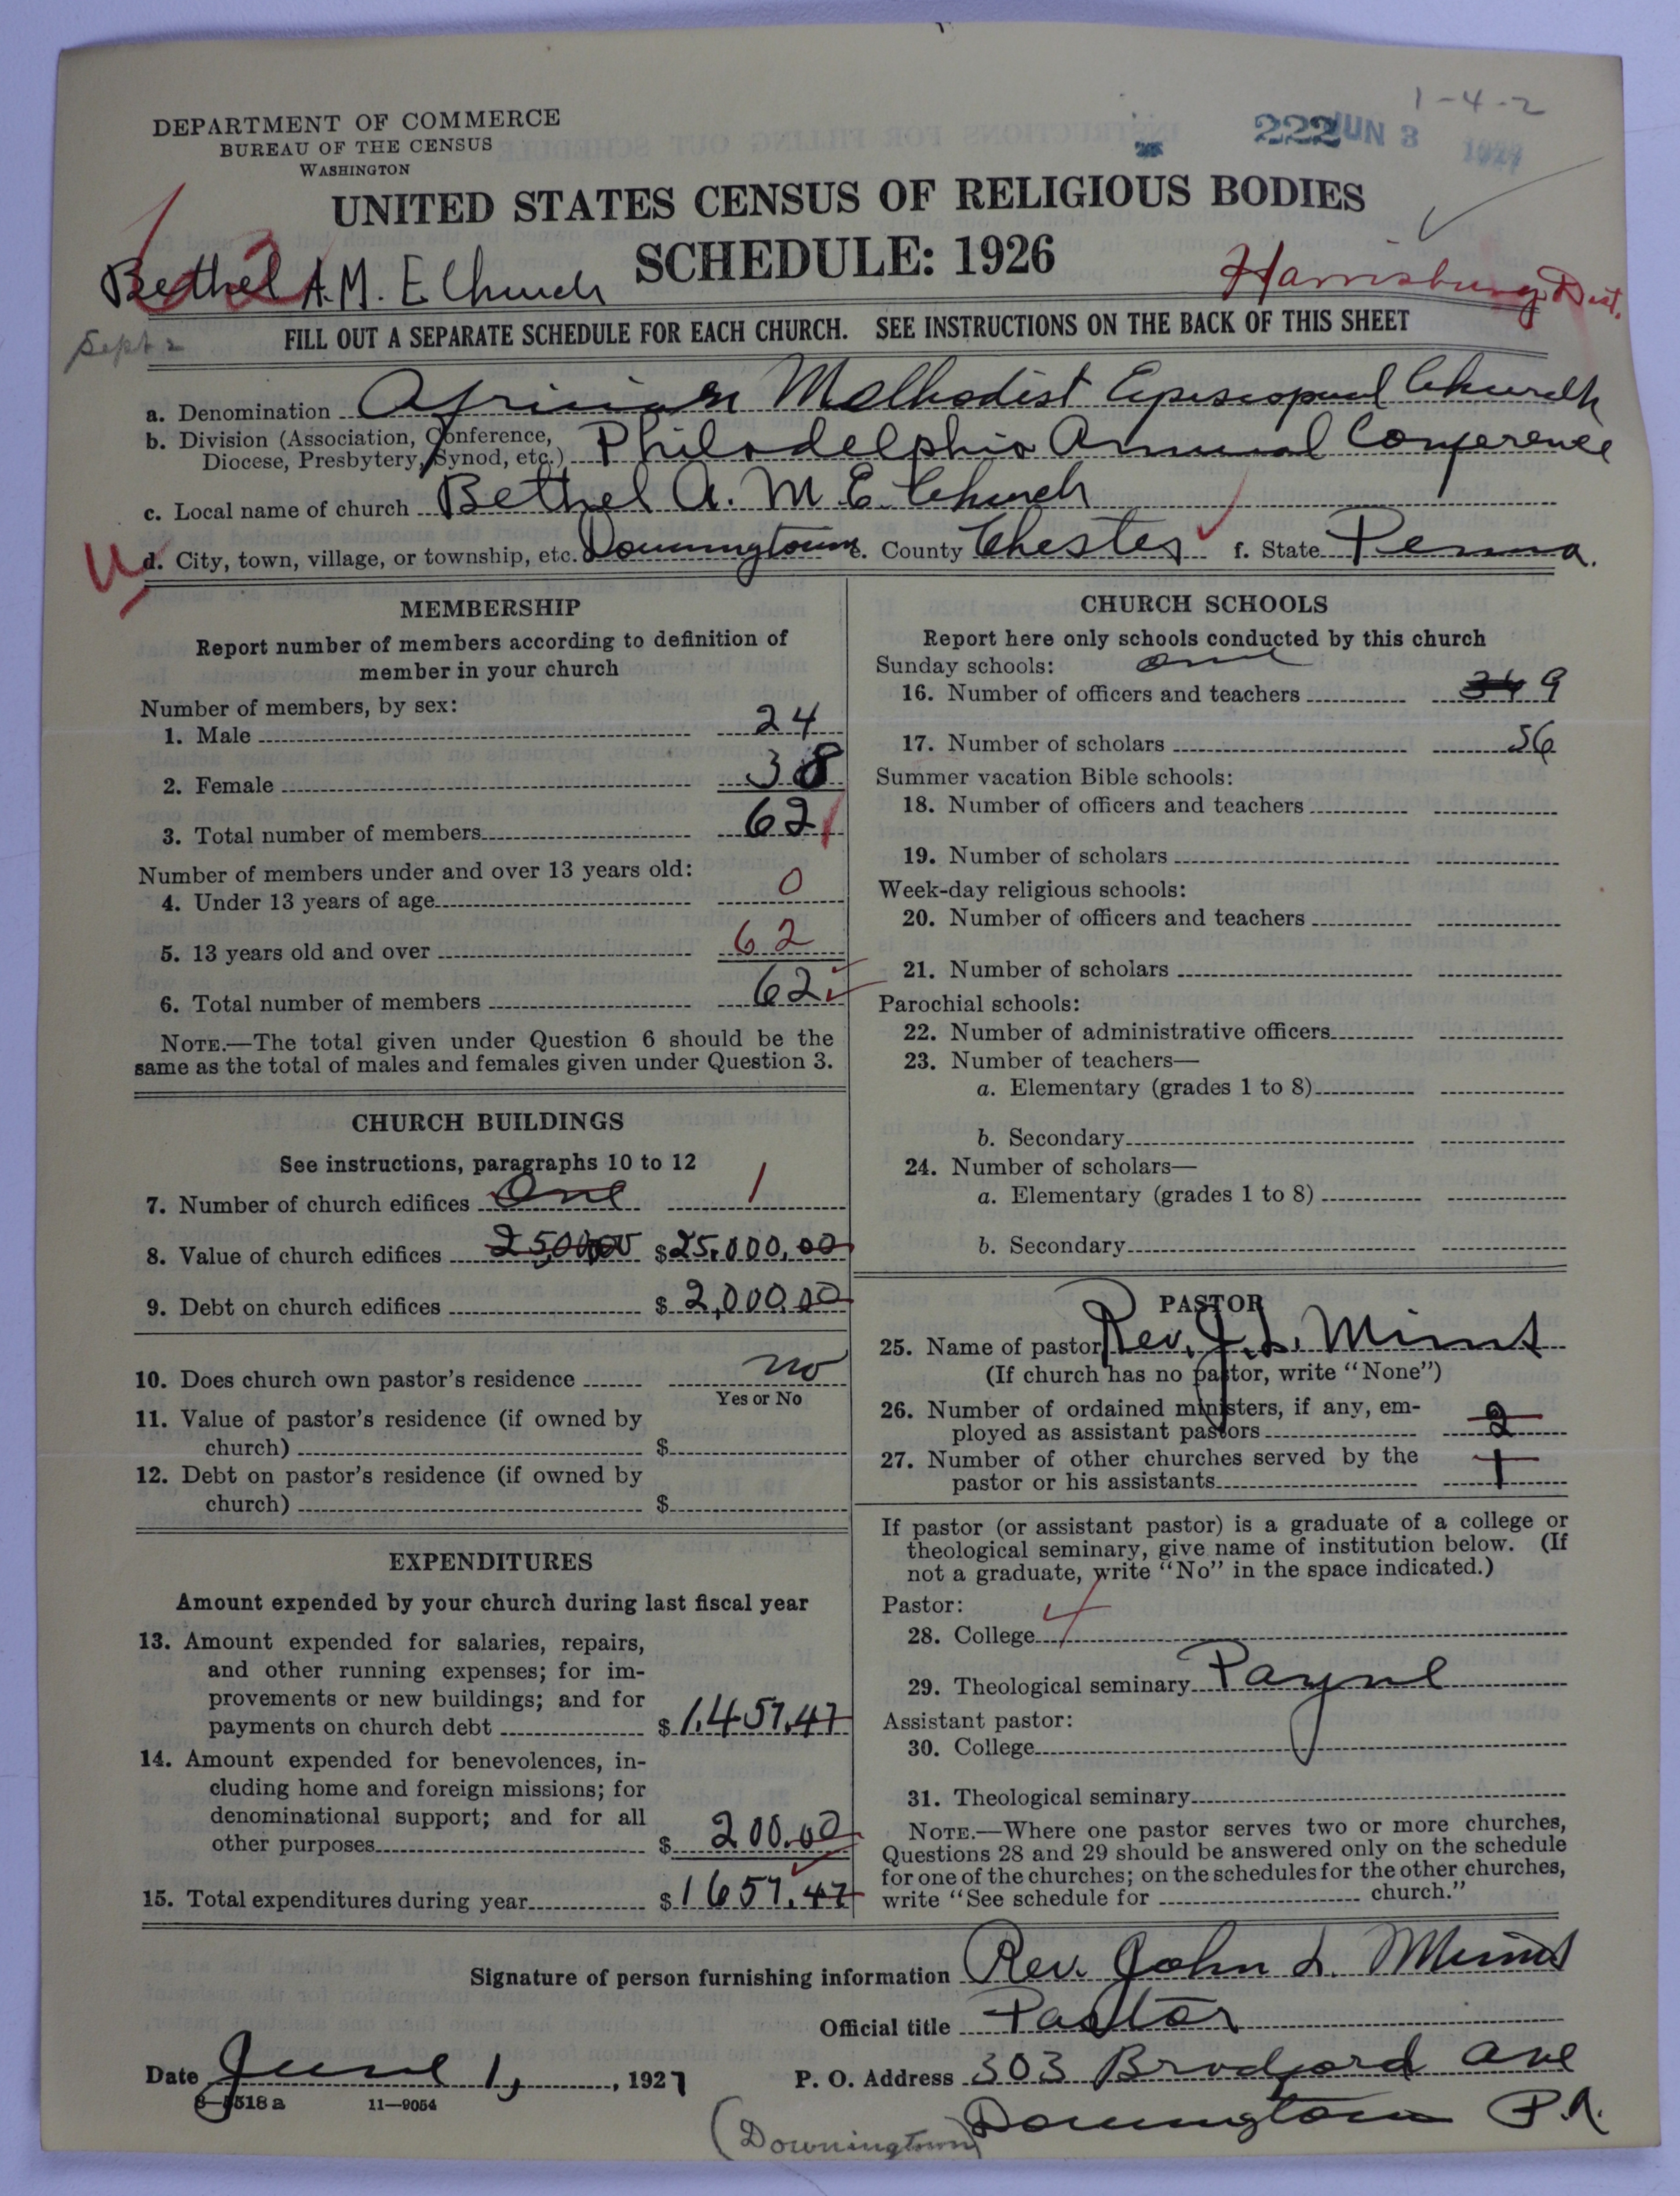 1-4-2
DEPARTMENT OF COMMERCE
BUREAU OF THE CENSUS
WASHINGTON
222 JUN 3 1927
UNITED STATES CENSUS OF RELIGIOUS BODIES
SCHEDULE: 1926
Bethel A.M. E Church
Harrisburg Dist.
Sept 2
FILL OUT A SEPARATE SCHEDULE FOR EACH CHURCH. SEE INSTRUCTIONS ON THE BACK OF THIS SHEET
a. Denomination African Methodist Episcopal Church
b. Division (Association, Conference,
Diocese, Presbytery, Synod, etc.) Philadelphia Annual Conference
c. Local name of church Bethel A. M. E. Church
d. City, town, village, or township, etc. Downingtown e. County Chester f. State Penna.
MEMBERSHIP
Report number of members according to definition of
member in your church
Number of members, by sex:
1. Male 24
2. Female 38
3. Total number of members 62
Number of members under and over 13 years old:
4. Under 13 years of age 0
5. 13 years old and over 62
6. Total number of members 62
NOTE.—The total given under Question 6 should be the
same as the total of males and females given under Question 3.
CHURCH BUILDINGS
See instructions, paragraphs 10 to 12
7. Number of church edifices One 1
8. Value of church edifices $25,000.00
9. Debt on church edifices $2,000.00
10. Does church own pastor's residence no
Yes or No
11. Value of pastor's residence (if owned by
church) $
12. Debt on pastor's residence (if owned by
church) $
EXPENDITURES
Amount expended by your church during last fiscal year
13. Amount expended for salaries, repairs,
and other running expenses; for im-
provements or new buildings; and for
payments on church debt $1,457.47
14. Amount expended for benevolences, in-
cluding home and foreign missions; for
denominational support; and for all
other purposes $200.00
15. Total expenditures during year $1657.47
CHURCH SCHOOLS
Report here only schools conducted by this church
Sunday schools: one
16. Number of officers and teachers 9
17. Number of scholars 56
Summer vacation Bible schools:
18. Number of officers and teachers
19. Number of scholars
Week-day religious schools:
20. Number of officers and teachers
21. Number of scholars
Parochial schools:
22. Number of administrative officers
23. Number of teachers—
a. Elementary (grades 1 to 8)
b. Secondary
24. Number of scholars—
a. Elementary (grades 1 to 8)
b. Secondary
PASTOR
25. Name of pastor Rev. J. L. Mims
(If church has no pastor, write "None")
26. Number of ordained ministers, if any, em-
ployed as assistant pastors 2
27. Number of other churches served by the
pastor or his assistants 1
If pastor (or assistant pastor) is a graduate of a college or
theological seminary, give name of institution below. (If
not a graduate, write "No" in the space indicated.)
Pastor:
28. College
29. Theological seminary Payne
Assistant pastor:
30. College
31. Theological seminary
NOTE.—Where one pastor serves two or more churches,
Questions 28 and 29 should be answered only on the schedule
for one of the churches; on the schedules for the other churches,
write "See schedule for church."
Signature of person furnishing information Rev. John L. Mims
Official title Pastor
Date June 1, 1927
P. O. Address 303 Bradford Ave
8—5518 a 11—9054
Downingtown P.A.
(Downingtown)